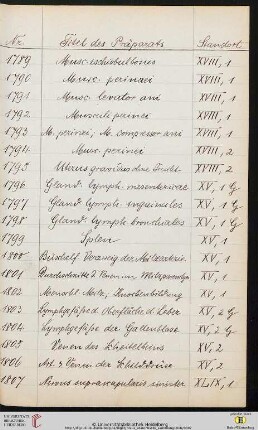 Nr. Titel des Präparats Standort
1789 Musc. ischiobulbosus XVIII, 1
1790 Musc. perinaei XVIII, 1
1791 Musc. levator ani XVIII, 1
1792 Musculi perinei XVIII, 1
1793 M. perinei, M. compressor ani XVIII, 1
1794 Musc. perinei XVIII, 2
1795 Uterus gravidus ohne Frucht XVIII, 2
1796 Gland. lymph. mesentericae XV, 1 G
1797 Gland. lymph. inguinales XV, 1 G
1798 Gland. lymph. bronchiales XV, 1 G
1799 Splen XV, 1
1800 Bischoff XV, 1
1801 Durchschnitte d. XV, 1
1802 XV, 1
1803 Lymphgefäße d. Oberfläche d. Leber XV, 2 G
1804 Lymphgefäße der Gallenblase XV, 2 G
1805 Venen des XV, 2
1806 Art. & Venen der Schilddrüse XV, 2
1807 Nervus suprascapularis sinister XLIX, 1
UNIVERSITÄTS-
BIBLIOTHEK
HEIDELBERG
Universitätsbibliothek Heidelberg